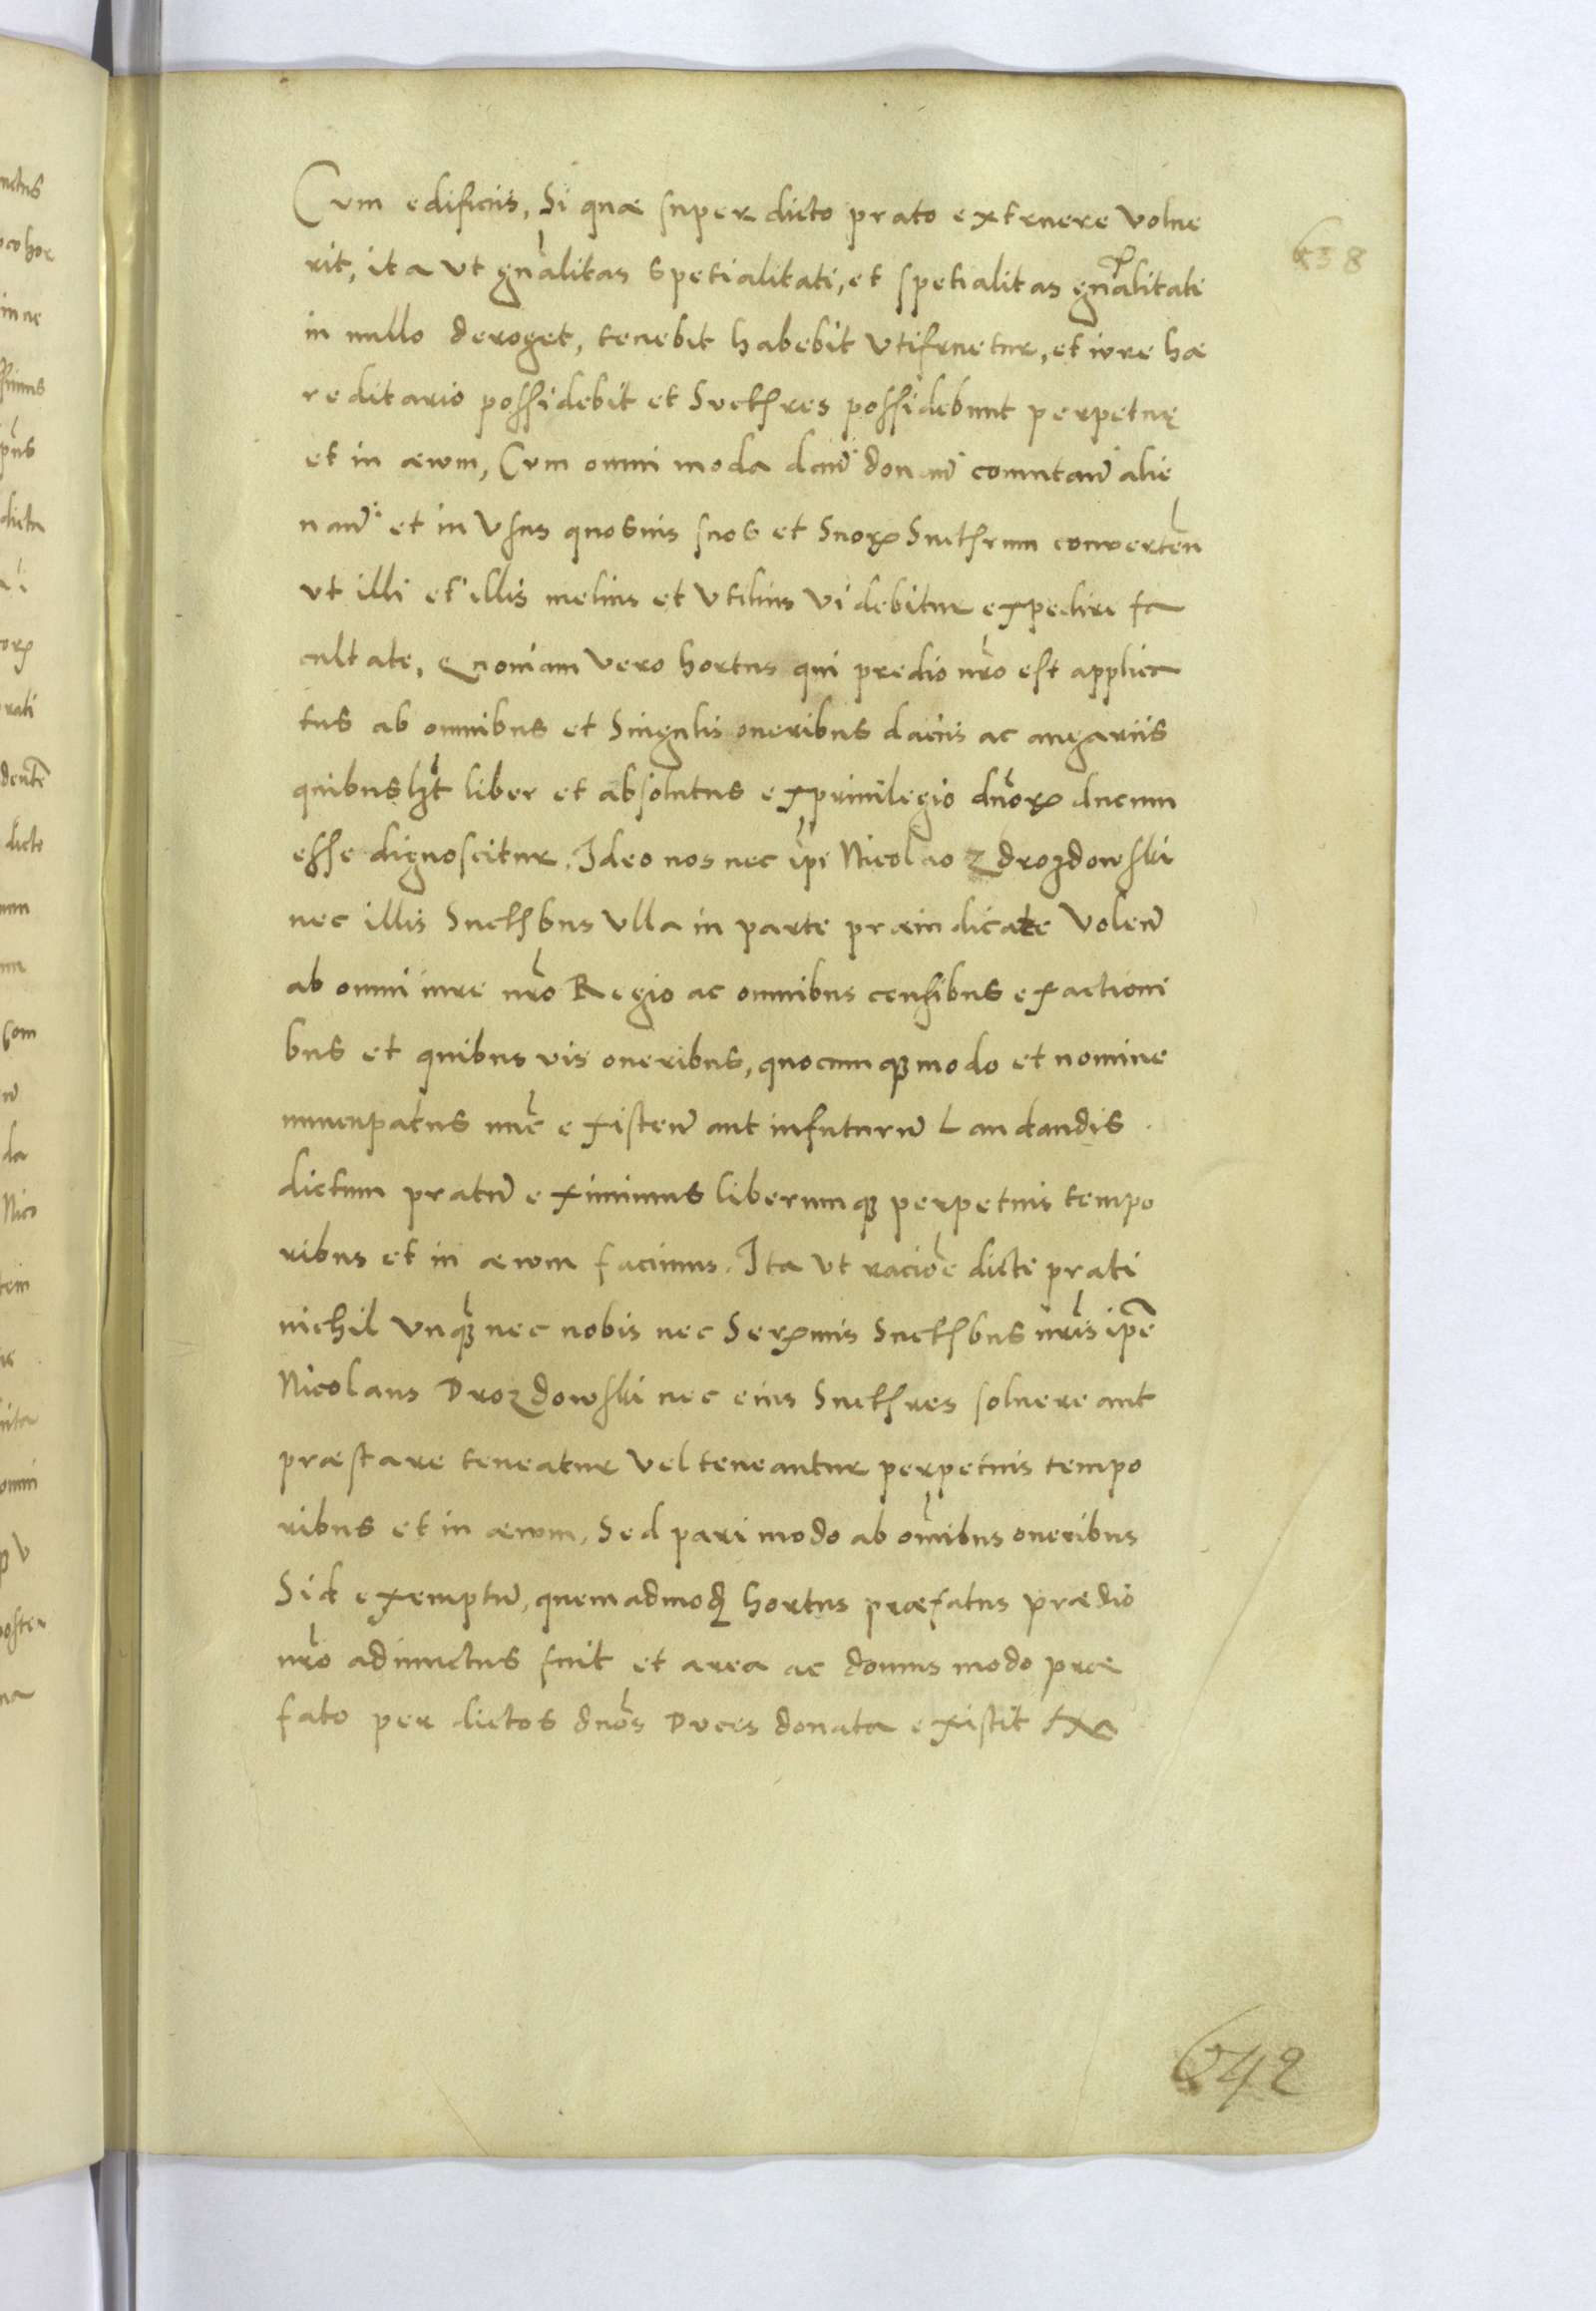 638
Cum edificiis, Si quæ super dicto prato extruere volue
rit, ita ut gnalitas spetialitati, et spetialitas gnalitati
in nullo deroget, tenebit habebit utifruetur, et iure hæ
reditario possidebit et Succhres possidebunt perpetuę
et in ævum, Cum omni moda dan̄ donan̄ comutan̄ alie
nan̄ et in usus quosuis suos et Suoꝝ Succhrum converten̄
ut illi et illis melius et utilius videbitur expedire fa
cultate, Quoniam vero hortus qui predio nr̄o est applica
tus ab omnibus et Singulis oneribus daciis ac angariis
quibuslꝫt liber et absolutus ex privilegio dn̄oꝝ ducum
esse dignoscitur. Ideo nos nec ip̄i Nicolao Zdrozdowski
nec illis Succhbus ulla in parte præiudicare volen̄
ab omni iure nr̄o Regio ac omnibus censibus exactioni
bus et quibus vis oneribus, quocumqꝫ modo et nomine
nuncupatus nūc existen̄ aut in futurū Laudandis
dictum pratū eximimus liberumqꝫ perpetuis tempo
ribus et in ævum facimus. Ita ut racioē dicti prati
nichil unqꝫ nec nobis nec Serꝝmis Succhbus nr̄is ip̄e
Nicolaus Drozdowski nec eius Succhres soluere aut
præstare teneatur vel teneantur perpetuis tempo
ribus et in ævum, Sed pari modo ab om̄ibus oneribus
Sit exemptū, quemadmoꝺ hortus præfatus prædio
nr̄o adiunctus fuit et area ac domus modo præ
fato per dictos dn̄os Duces donata existit
642